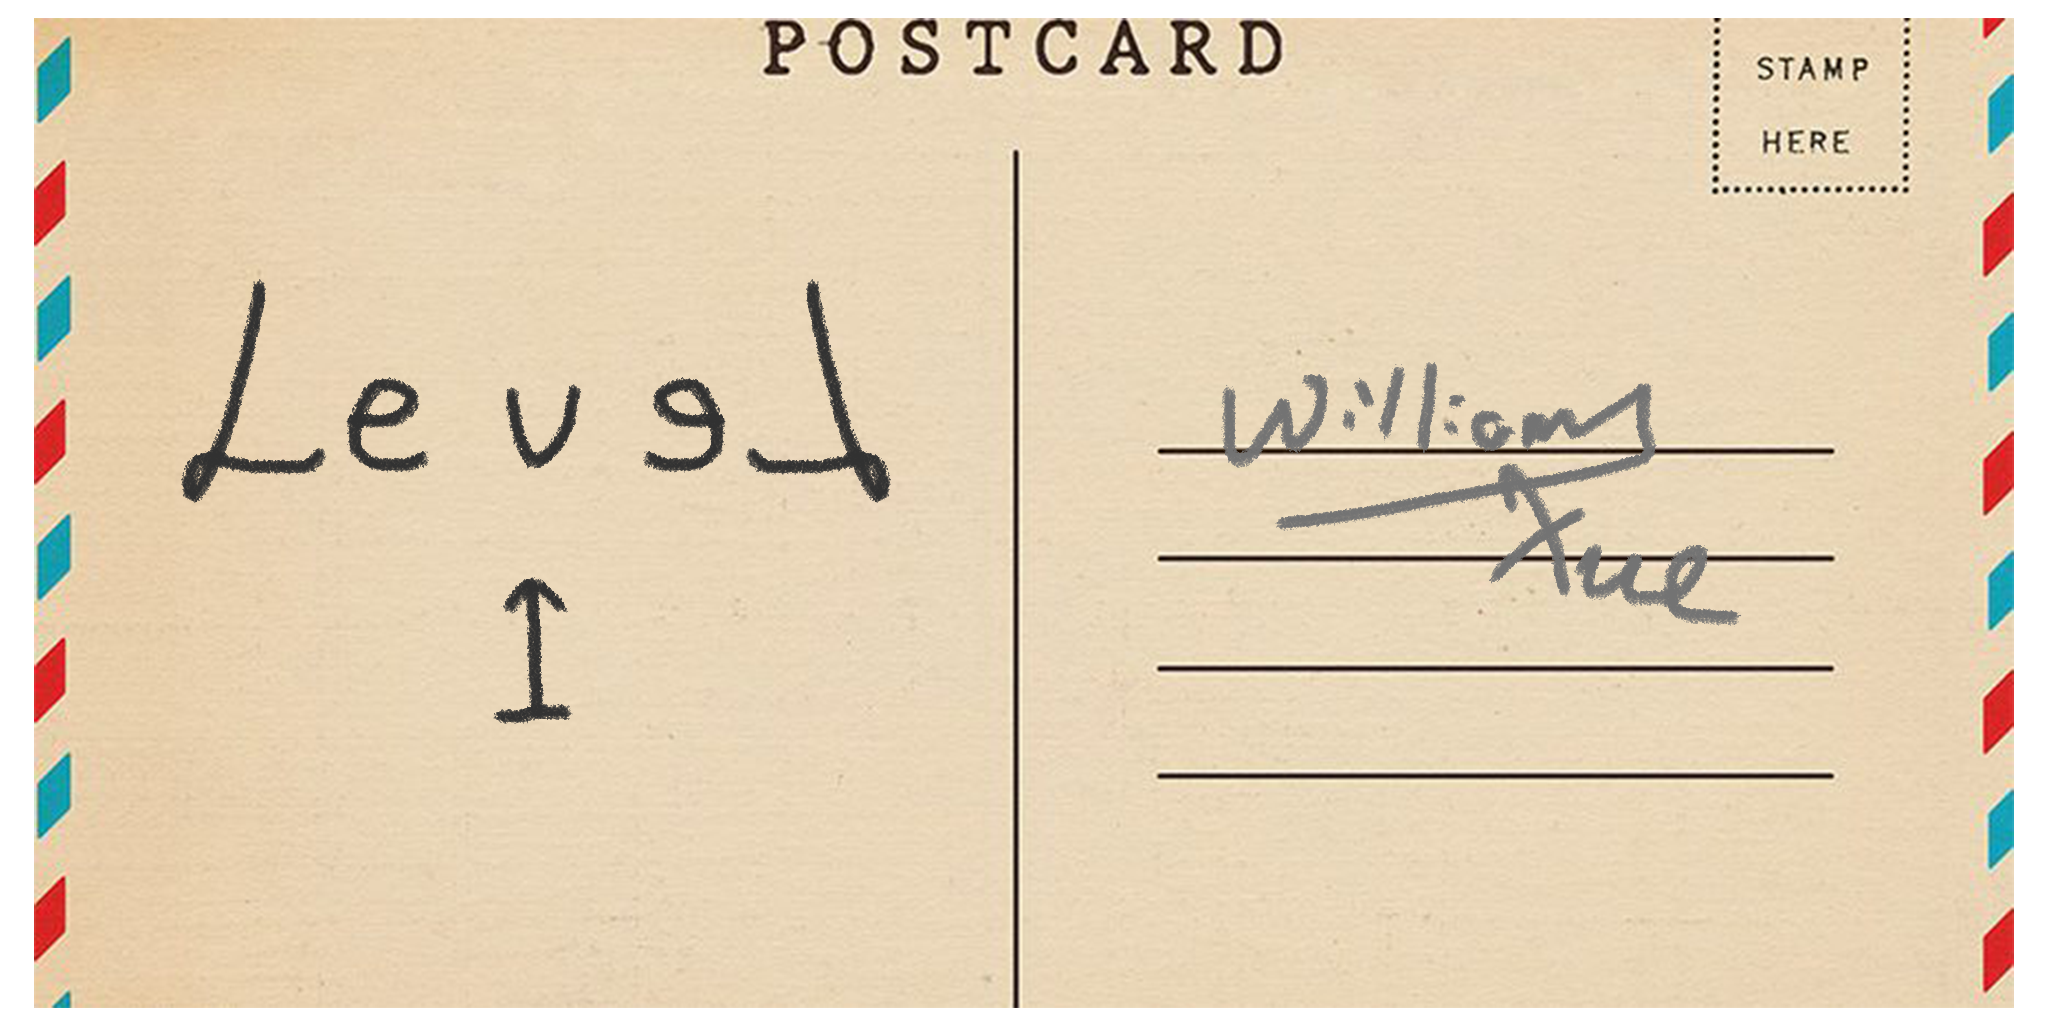 POSTCARD
STAMP
HERE
Level
Williams
Xue